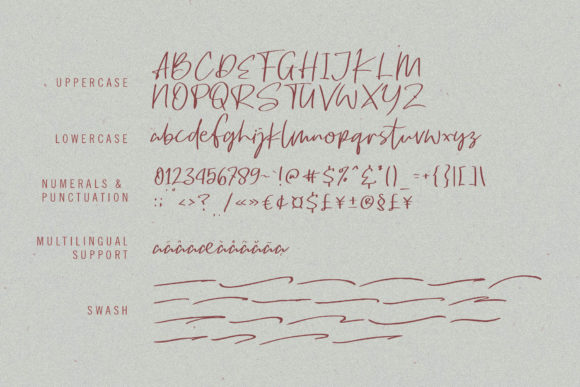 UPPERCASE
ABCDEFGHIJKLM
NOPQRSTUVWXYZ
LOWERCASE
abcdefghijklmnopqrstuvwxyz
NUMERALS &
PUNCTUATION
0123456789~`!@#$%^&*()_=+{}|[]\
:; <>? /«»€¢¤$£¥±®§£¥
MULTILINGUAL
SUPPORT
SWASH